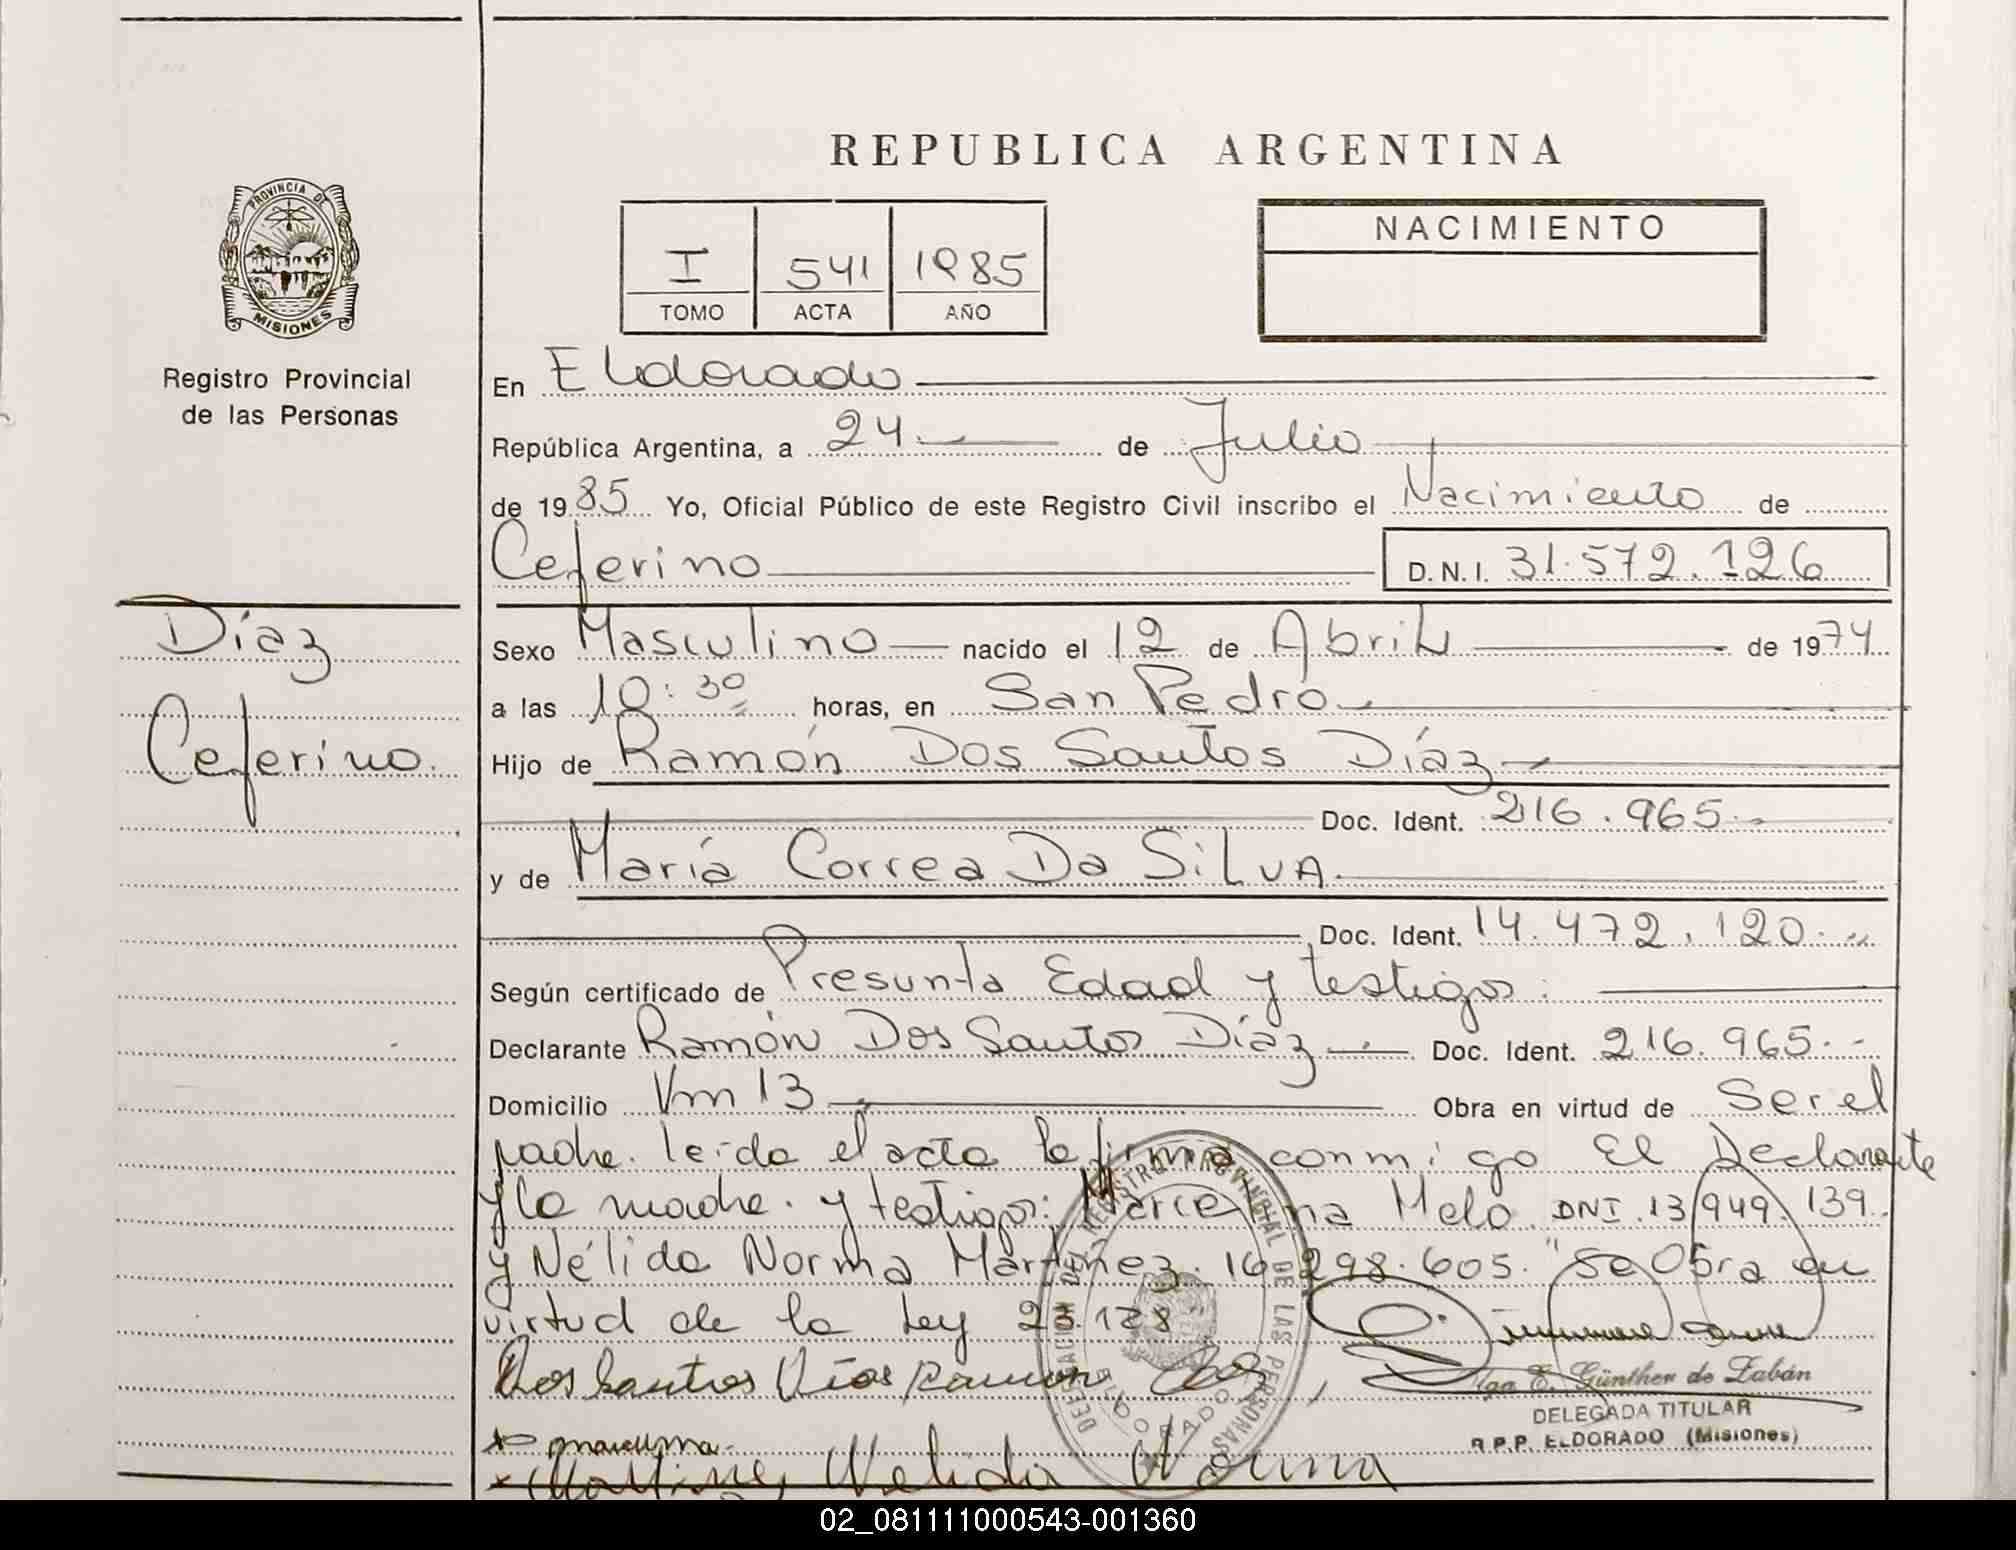 REPUBLICA ARGENTINA
PROVINCIA DE
MISIONES
Registro Provincial
de las Personas
I 541 1985
TOMO ACTA AÑO
NACIMIENTO
En Eldorado
República Argentina, a 24 de Julio
de 1985 Yo, Oficial Público de este Registro Civil inscribo el Nacimiento de
Ceferino D.N.I. 31.572.126
Díaz
Ceferino.
Sexo Masculino nacido el 12 de Abril de 1974
a las 10:30 horas, en San Pedro
Hijo de Ramón Dos Santos Díaz
Doc. Ident. 216.965
y de María Correa Da Silva
Doc. Ident. 14.472.120
Según certificado de Presunta Edad y testigos:
Declarante Ramón Dos Santos Díaz Doc. Ident. 216.965
Domicilio Km 13 Obra en virtud de Ser el
padre. leída el acta la firma conmigo El Declarante
y la madre. y testigos: Marcelina Melo DNI. 13.949.139
y Nélida Norma Martinez. 16.298.605. "Se Obra en
virtud de la Ley 23.128
Dos Santos Días Ramon
Olga E. Günther de Zabán
DELEGADA TITULAR
R.P.P. ELDORADO (Misiones)
Martinez Nelida Norma
DELEGACION DEL REGISTRO PROVINCIAL DE LAS PERSONAS
ELDORADO
02_081111000543-001360